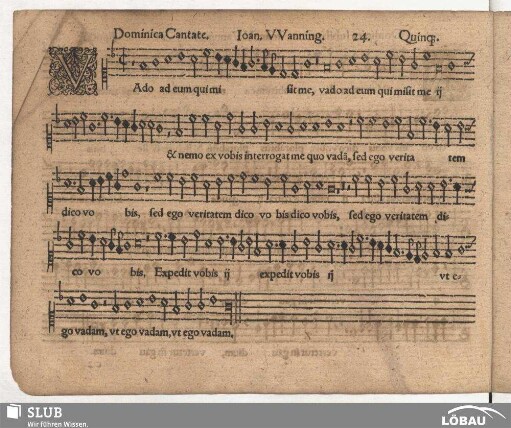 Dominica Cantate. Ioan. VVanning. 24. Quinq;.
VAdo ad eum qui mi sit me, vado ad eum qui misit me ij
& nemo ex vobis interrogat me quo vadā, sed ego verita tem
dico vo bis, sed ego veritatem dico vo bis dico vobis, sed ego veritatem di-
co vo bis. Expedit vobis ij expedit vobis ij vt e-
go vadam, vt ego vadam, vt ego vadam.
SLUB
Wir führen Wissen.
LÖBAU